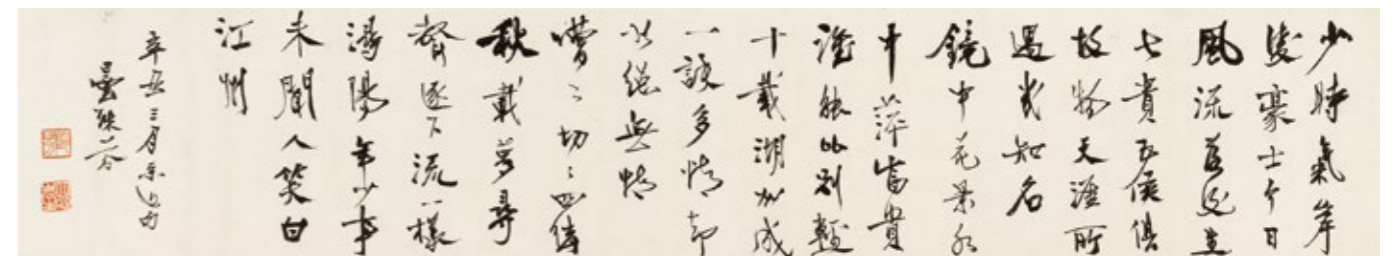 少時氣岸
凌豪士今日
風流生
七貴五侯俱
故物天涯所
遇幾知名
鏡中花景水
中萍富貴
誰能比別輕
十載湖州成
一誤多情却
似總無情
嘈〻切〻四
秋載夢尋
聲逐下流一樣
潯陽年少事
未聞人笑白
江州
辛丑三月
曇殊